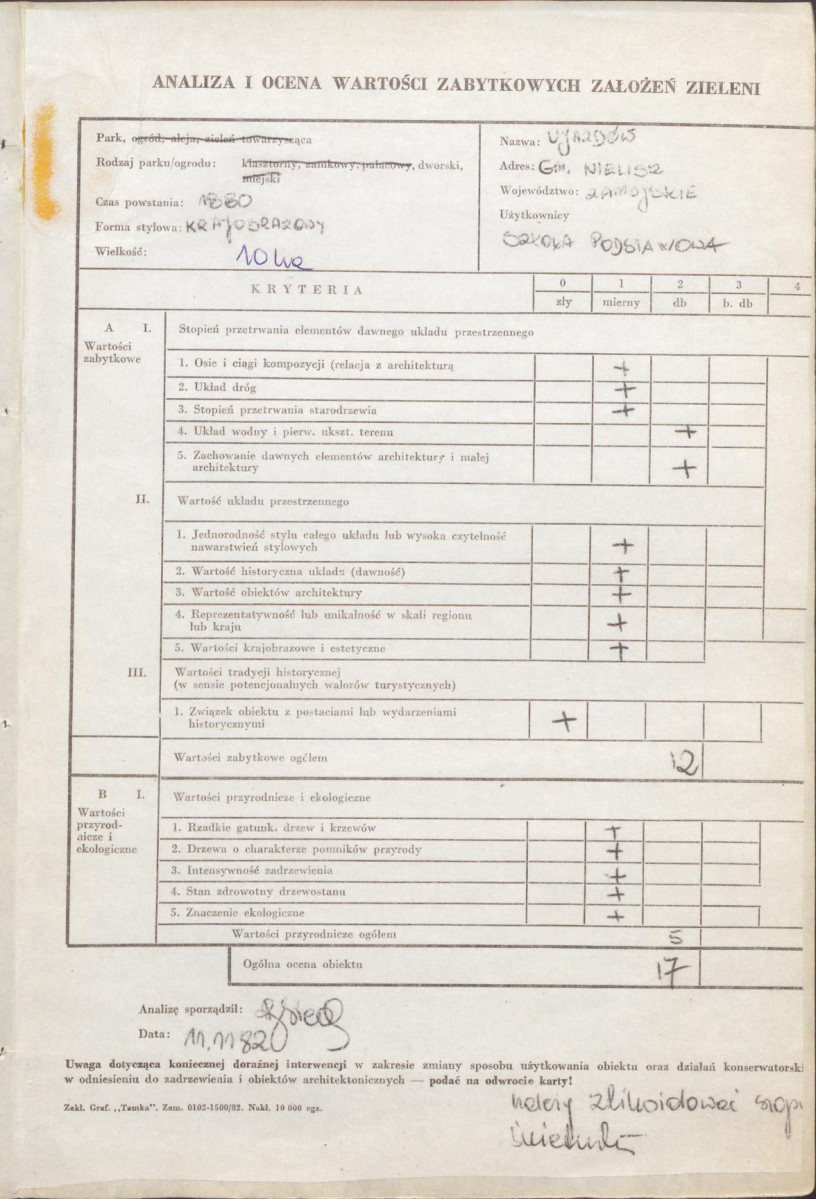 ANALIZA I OCENA WARTOŚCI ZABYTKOWYCH ZAŁOŻEŃ ZIELENI
Park, ogród, aleja, zieleń towarzysząca
Rodzaj parku/ogrodu: klasztorny, zamkowy, pałacowy, dworski,
miejski
Czas powstania: 1880
Forma stylowa: KRAJOBRAZOWY
Wielkość: 10 ha
Nazwa: UJAZDÓW
Adres: GM. NIELISZ
Województwo: ZAMOJSKIE
Użytkownicy
SZKOŁA PODSTAWOWA
KRYTERIA
0 1 2 3 4
zły mierny db b. db
A I. Stopień przetrwania elementów dawnego układu przestrzennego
Wartości
zabytkowe
1. Osie i ciągi kompozycji (relacja z architekturą +
2. Układ dróg +
3. Stopień przetrwania starodrzewia +
4. Układ wodny i pierw. ukszt. terenu +
5. Zachowanie dawnych elementów architektury i małej
architektury +
II. Wartość układu przestrzennego
1. Jednorodność stylu całego układu lub wysoka czytelność
nawarstwień stylowych +
2. Wartość historyczna układu (dawność) +
3. Wartość obiektów architektury +
4. Reprezentatywność lub unikalność w skali regionu
lub kraju +
5. Wartości krajobrazowe i estetyczne +
III. Wartości tradycji historycznej
(w sensie potencjonalnych walorów turystycznych)
1. Związek obiektu z postaciami lub wydarzeniami
historycznymi +
Wartości zabytkowe ogółem 12
B I. Wartości przyrodnicze i ekologiczne
Wartości
przyrod-
nicze i
ekologiczne
1. Rzadkie gatunk. drzew i krzewów +
2. Drzewa o charakterze pomników przyrody +
3. Intensywność zadrzewienia +
4. Stan zdrowotny drzewostanu +
5. Znaczenie ekologiczne +
Wartości przyrodnicze ogółem 5
Ogólna ocena obiektu 17
Analizę sporządził:
Data: 11.11.82
Uwaga dotycząca koniecznej doraźnej interwencji w zakresie zmiany sposobu użytkowania obiektu oraz działań konserwatorski
w odniesieniu do zadrzewienia i obiektów architektonicznych — podać na odwrocie karty!
Zakł. Graf. „Tamka". Zam. 0102-1500/82. Nakł. 10 000 egz.
należy zlikwidować